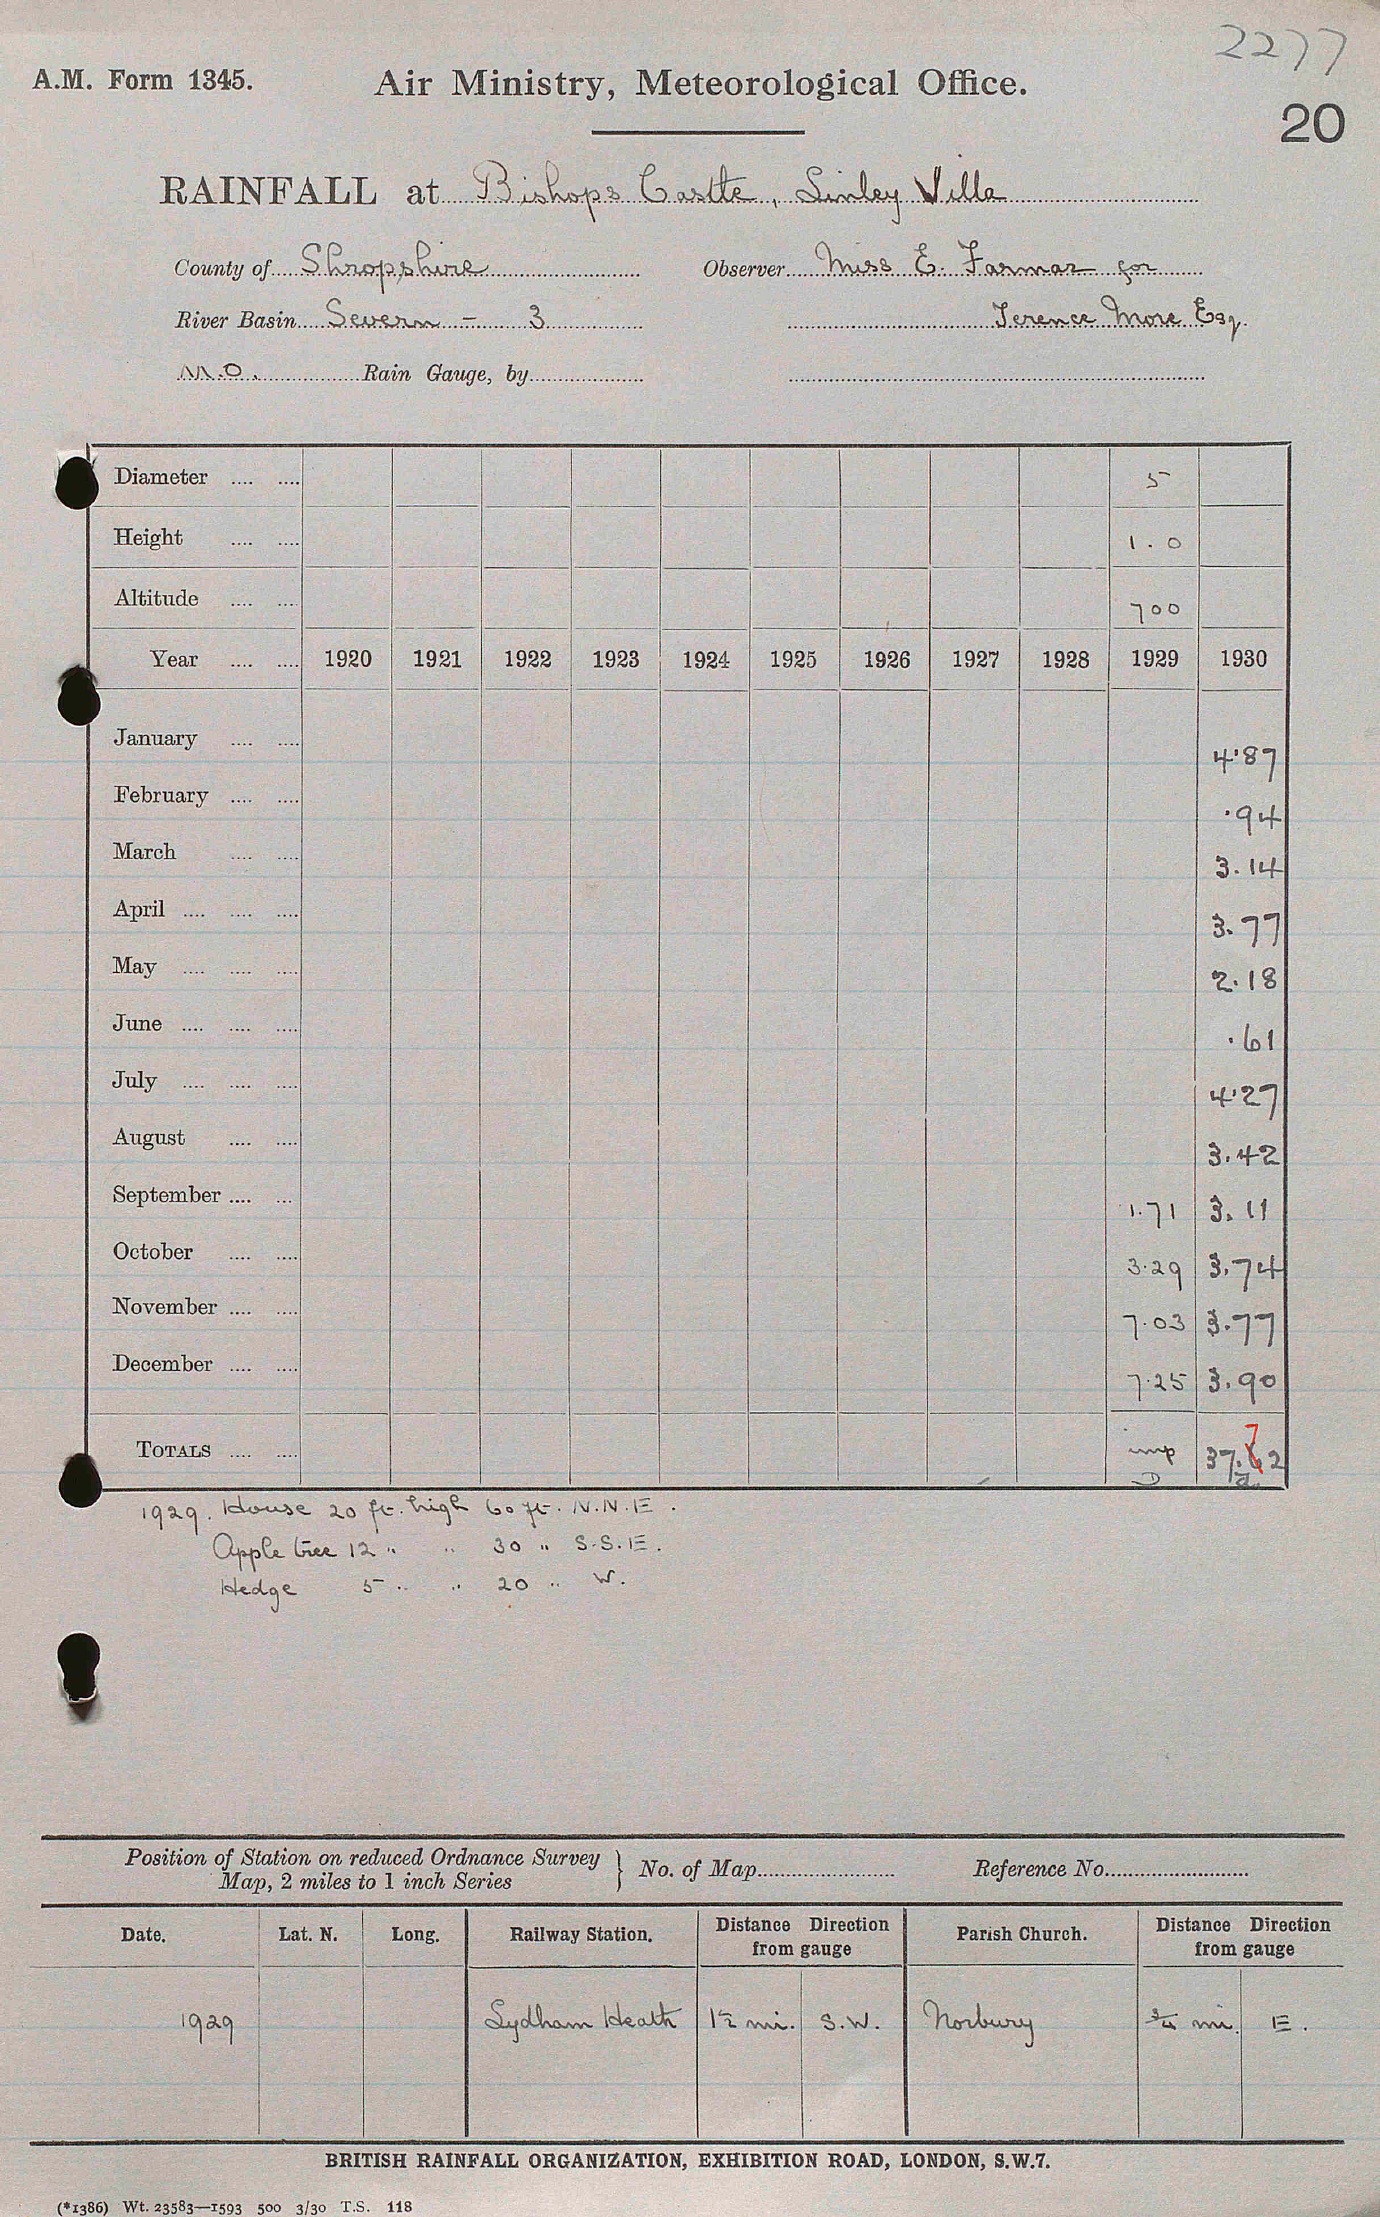 2277
A.M. Form 1345. Air Ministry, Meteorological Office.
20
RAINFALL at Bishops Castle, Linley Villa
County of Shropshire Observer Miss E. Farmar for
River Basin Severn - 3 Terence More Esq.
M.O. Rain Gauge, by
Diameter .... .... 5
Height .... .... 1.0
Altitude .... .... 700
Year .... .... 1920 1921 1922 1923 1924 1925 1926 1927 1928 1929 1930
January .... .... 4.87
February .... .... .94
March .... .... 3.14
April .... .... .... 3.77
May .... .... .... 2.18
June .... .... .... .61
July .... .... .... 4.27
August .... .... 3.42
September .... .... 1.71 3.11
October .... .... 3.29 3.74
November .... .... 7.03 3.77
December .... .... 7.25 3.90
7
TOTALS .... .... imp 37.62
D a
1929. House 20 ft. high 60 ft. N.N.E.
Apple tree 12 " " 30 " S.S.E.
Hedge 5 " " 20 " W.
Position of Station on reduced Ordnance Survey
Map, 2 miles to 1 inch Series } No. of Map Reference No.
Date. Lat. N. Long. Railway Station. Distance Direction from gauge Parish Church. Distance Direction from gauge
1929 Lydham Heath 1½ mi. S.W. Norbury ¾ mi. E.
BRITISH RAINFALL ORGANIZATION, EXHIBITION ROAD, LONDON, S.W.7.
(*1386) Wt. 23583—1593 500 3/30 T.S. 118